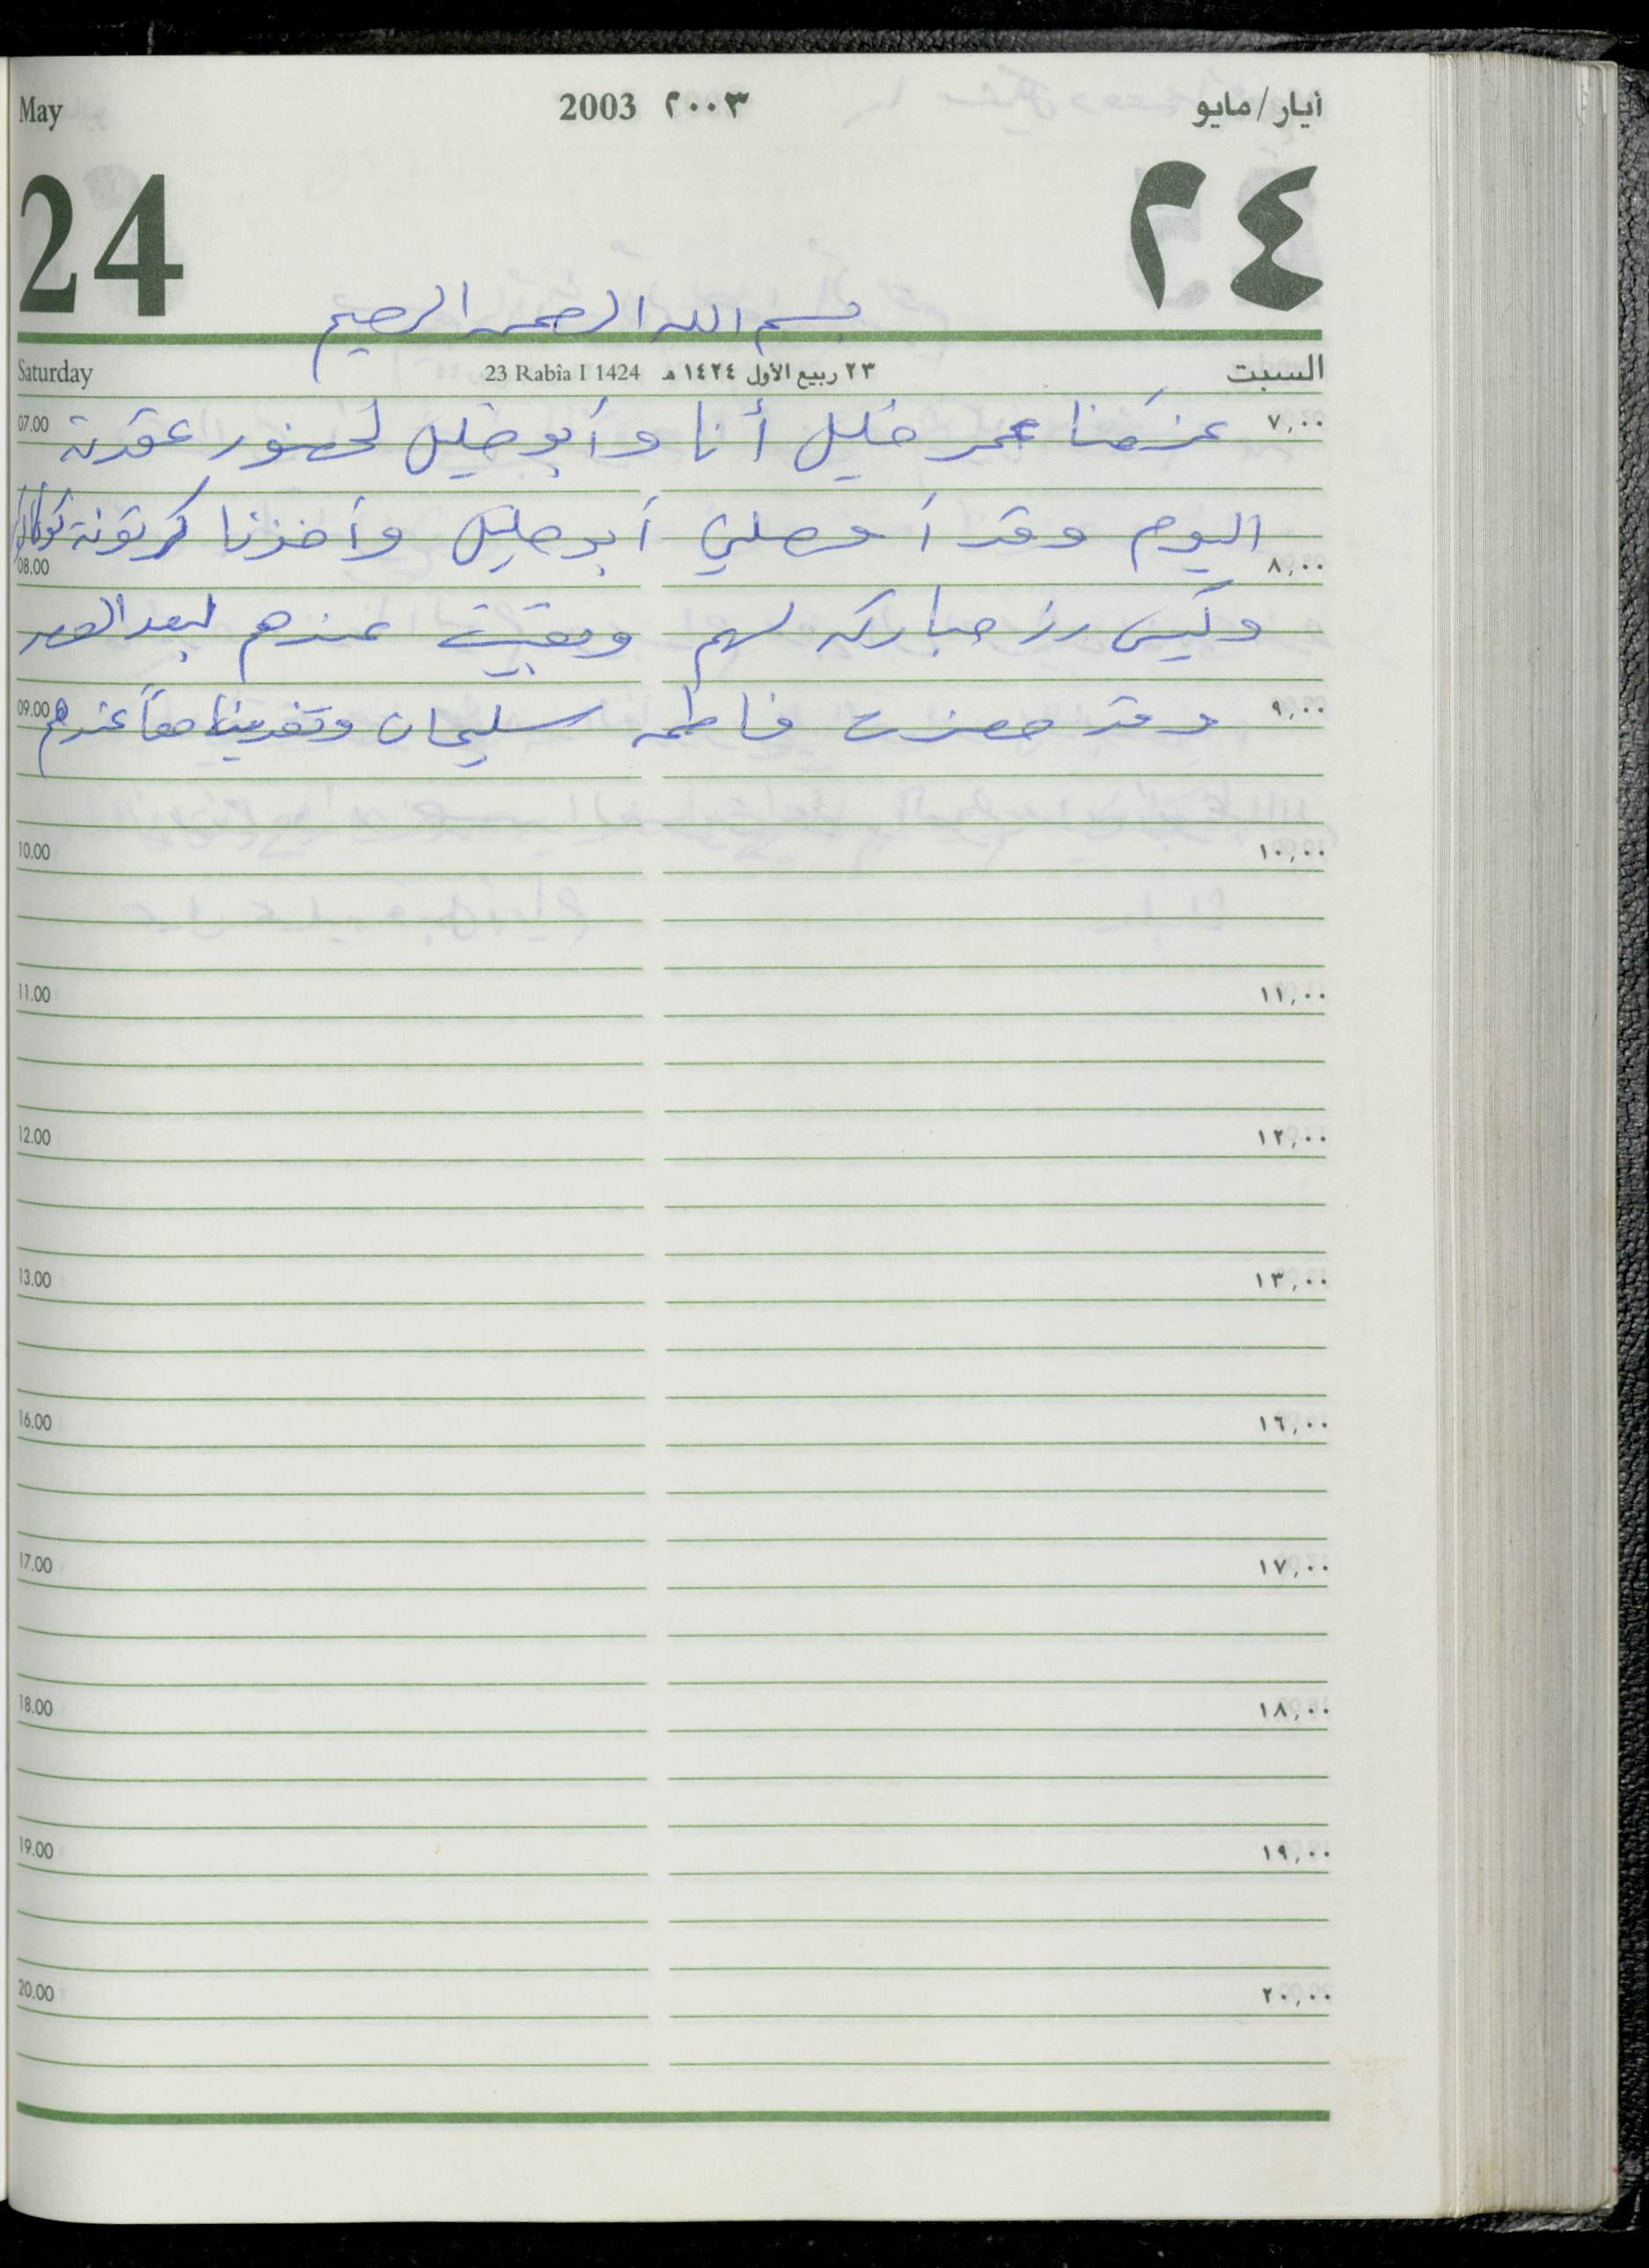 May 2003 ٢٠٠٣ أيار/مايو
24 ٢٤
بسم الله الرحمن الرحيم
Saturday 23 Rabîa I 1424 ٢٣ ربيع الأول ١٤٢٤ هـ السبت
07.00 ٧,٠٠
عزمنا عمر خليل أنا وأبو خليل لحضور عقدة
اليوم وقد أوصلني أبو خليل وأخذنا كرتونة
08.00 ٨,٠٠
وكيس رز مباركه لهم وبقيت عندهم لبعد العصر
09.00 ٩,٠٠
وقد حضرت فاطمه سليمان وتغدينا معاً عندهم
10.00 ١٠,٠٠
11.00 ١١,٠٠
12.00 ١٢,٠٠
13.00 ١٣,٠٠
16.00 ١٦,٠٠
17.00 ١٧,٠٠
18.00 ١٨,٠٠
19.00 ١٩,٠٠
20.00 ٢٠,٠٠